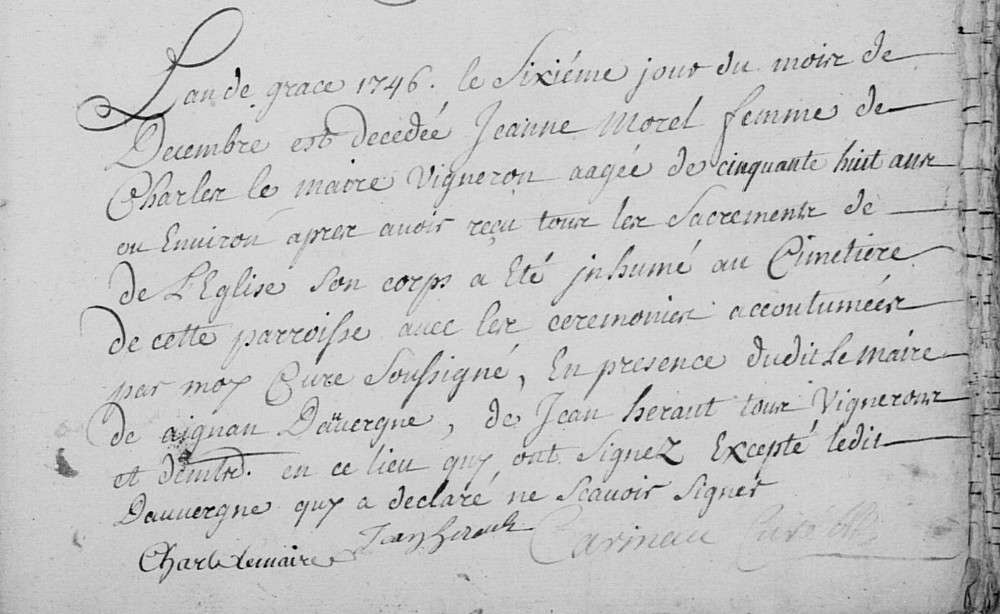 Lan de grace 1746. le Sixiéme jour du mois de
Decembre est decedée Jeanne Morel femme de
Charles le maire Vigneron aagée de cinquante huit ans
ou Environ apres avoir reçu tous les Sacrements de
de L'Eglise Son corps a Eté jnhumé au Cimetiere
de cette parroisse avec les ceremonies accoutumées
par moy Curé Soussigné, En presence dudit Le Maire
de aignan Dauvergne, de Jean herault tous Vignerons
et en ce lieu quy ont signez Excepté ledit
Dauvergne quy a declaré ne scavoir signer
Charle lemaire Jean herault Carineau Curé